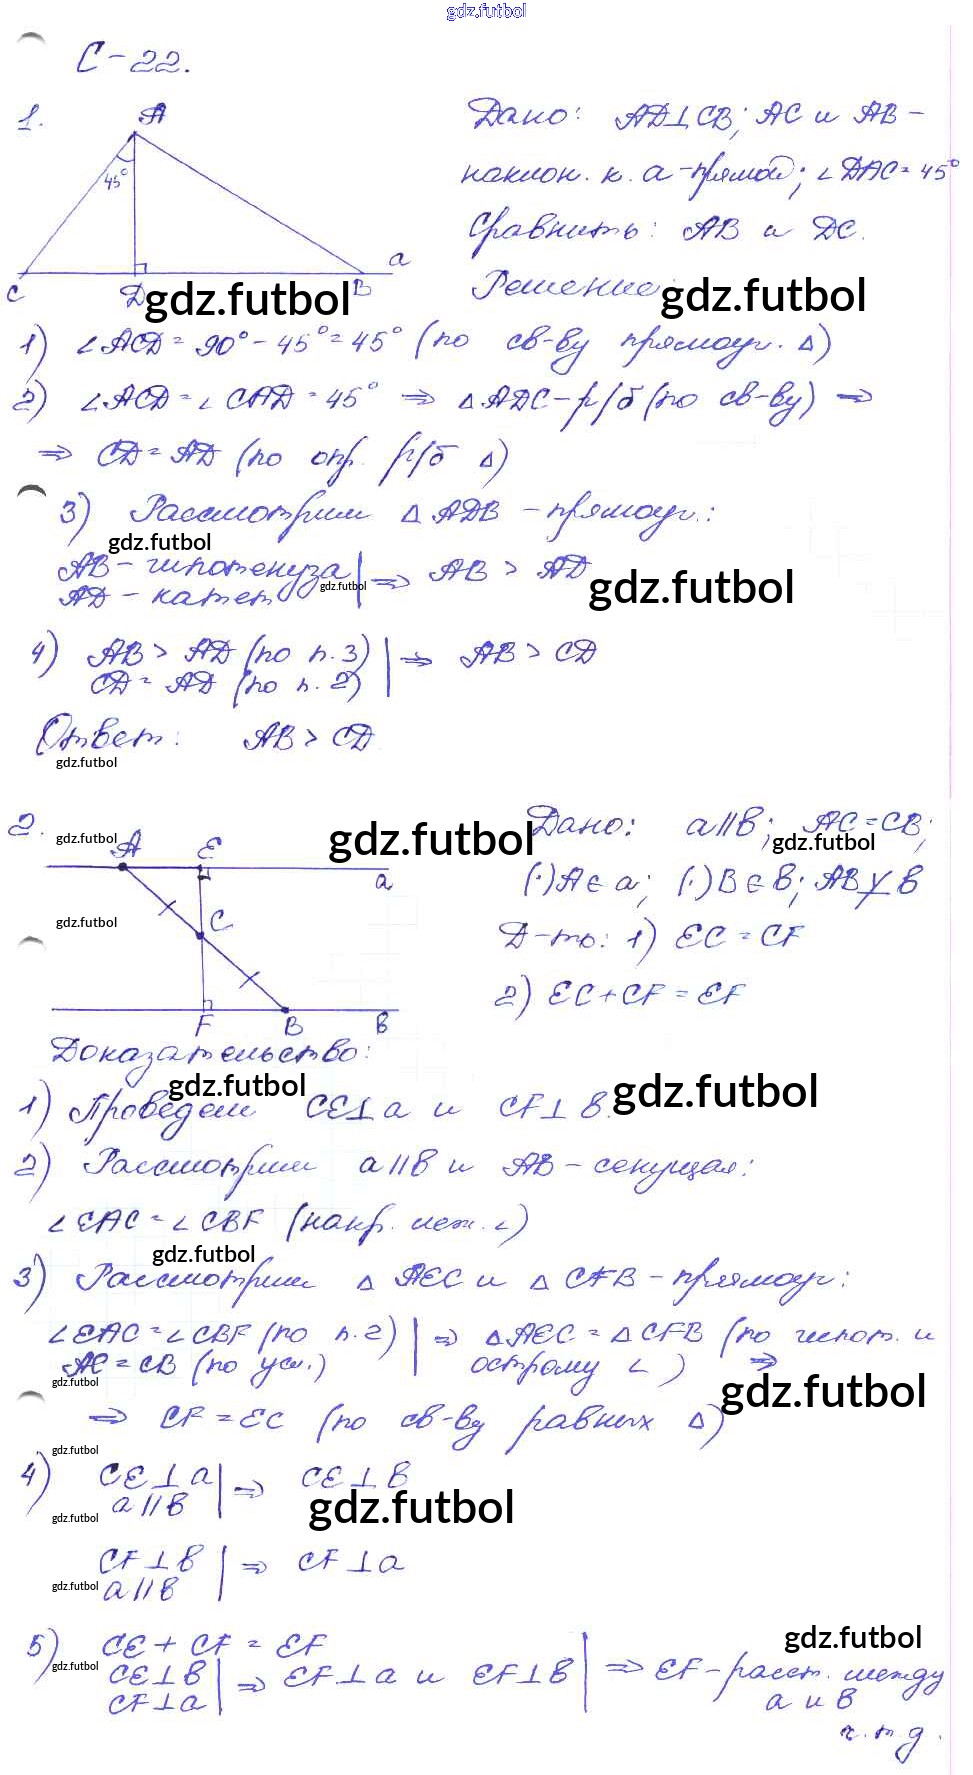 gdz.futbol
С-22.
1.
A
45°
C
D
B
a
Дано: AD⊥CB; AC и AB -
наклон. к. a-прямой; ∠DAC = 45°
Сравнить: AB и DC.
Решение:
gdz.futbol
gdz.futbol
1) ∠ACD = 90° - 45° = 45° (по св-ву прямоуг. Δ)
2) ∠ACD = ∠CAD = 45° ⇒ ΔADC - р/б (по св-ву) ⇒
⇒ CD = AD (по опр. р/б Δ)
3) Рассмотрим ΔADB - прямоуг.:
gdz.futbol
AB - гипотенуза
AD - катет
gdz.futbol
⇒ AB > AD
gdz.futbol
4) AB > AD (по п.3)
CD = AD (по п.2)
⇒ AB > CD
Ответ: AB > CD
gdz.futbol
2.
gdz.futbol
A
E
a
gdz.futbol
C
F
B
в
gdz.futbol
Дано: a||в; AC = CB;
gdz.futbol
(·)A ∈ a; (·)B ∈ в; AB ⊥̸ в
Д-ть: 1) EC = CF
2) EC + CF = EF
Доказательство:
gdz.futbol
gdz.futbol
1) Проведем CE⊥a и CF⊥в.
2) Рассмотрим a||в и AB - секущая:
∠EAC = ∠CBF (накр. леж. ∠)
gdz.futbol
3) Рассмотрим ΔAEC и ΔCFB - прямоуг:
∠EAC = ∠CBF (по п.2)
AC = CB (по усл.)
⇒ ΔAEC = ΔCFB (по гипот. и
острому ∠) ⇒
gdz.futbol
gdz.futbol
⇒ CF = EC (по св-ву равных Δ)
gdz.futbol
4) CE⊥a
a||в
⇒ CE⊥в
gdz.futbol
gdz.futbol
CF⊥в
a||в
⇒ CF⊥a
gdz.futbol
5) CE + CF = EF
gdz.futbol
gdz.futbol
CE⊥в
CF⊥a
⇒ EF⊥a и EF⊥в
⇒ EF - расст. между
a и в
ч.т.д.